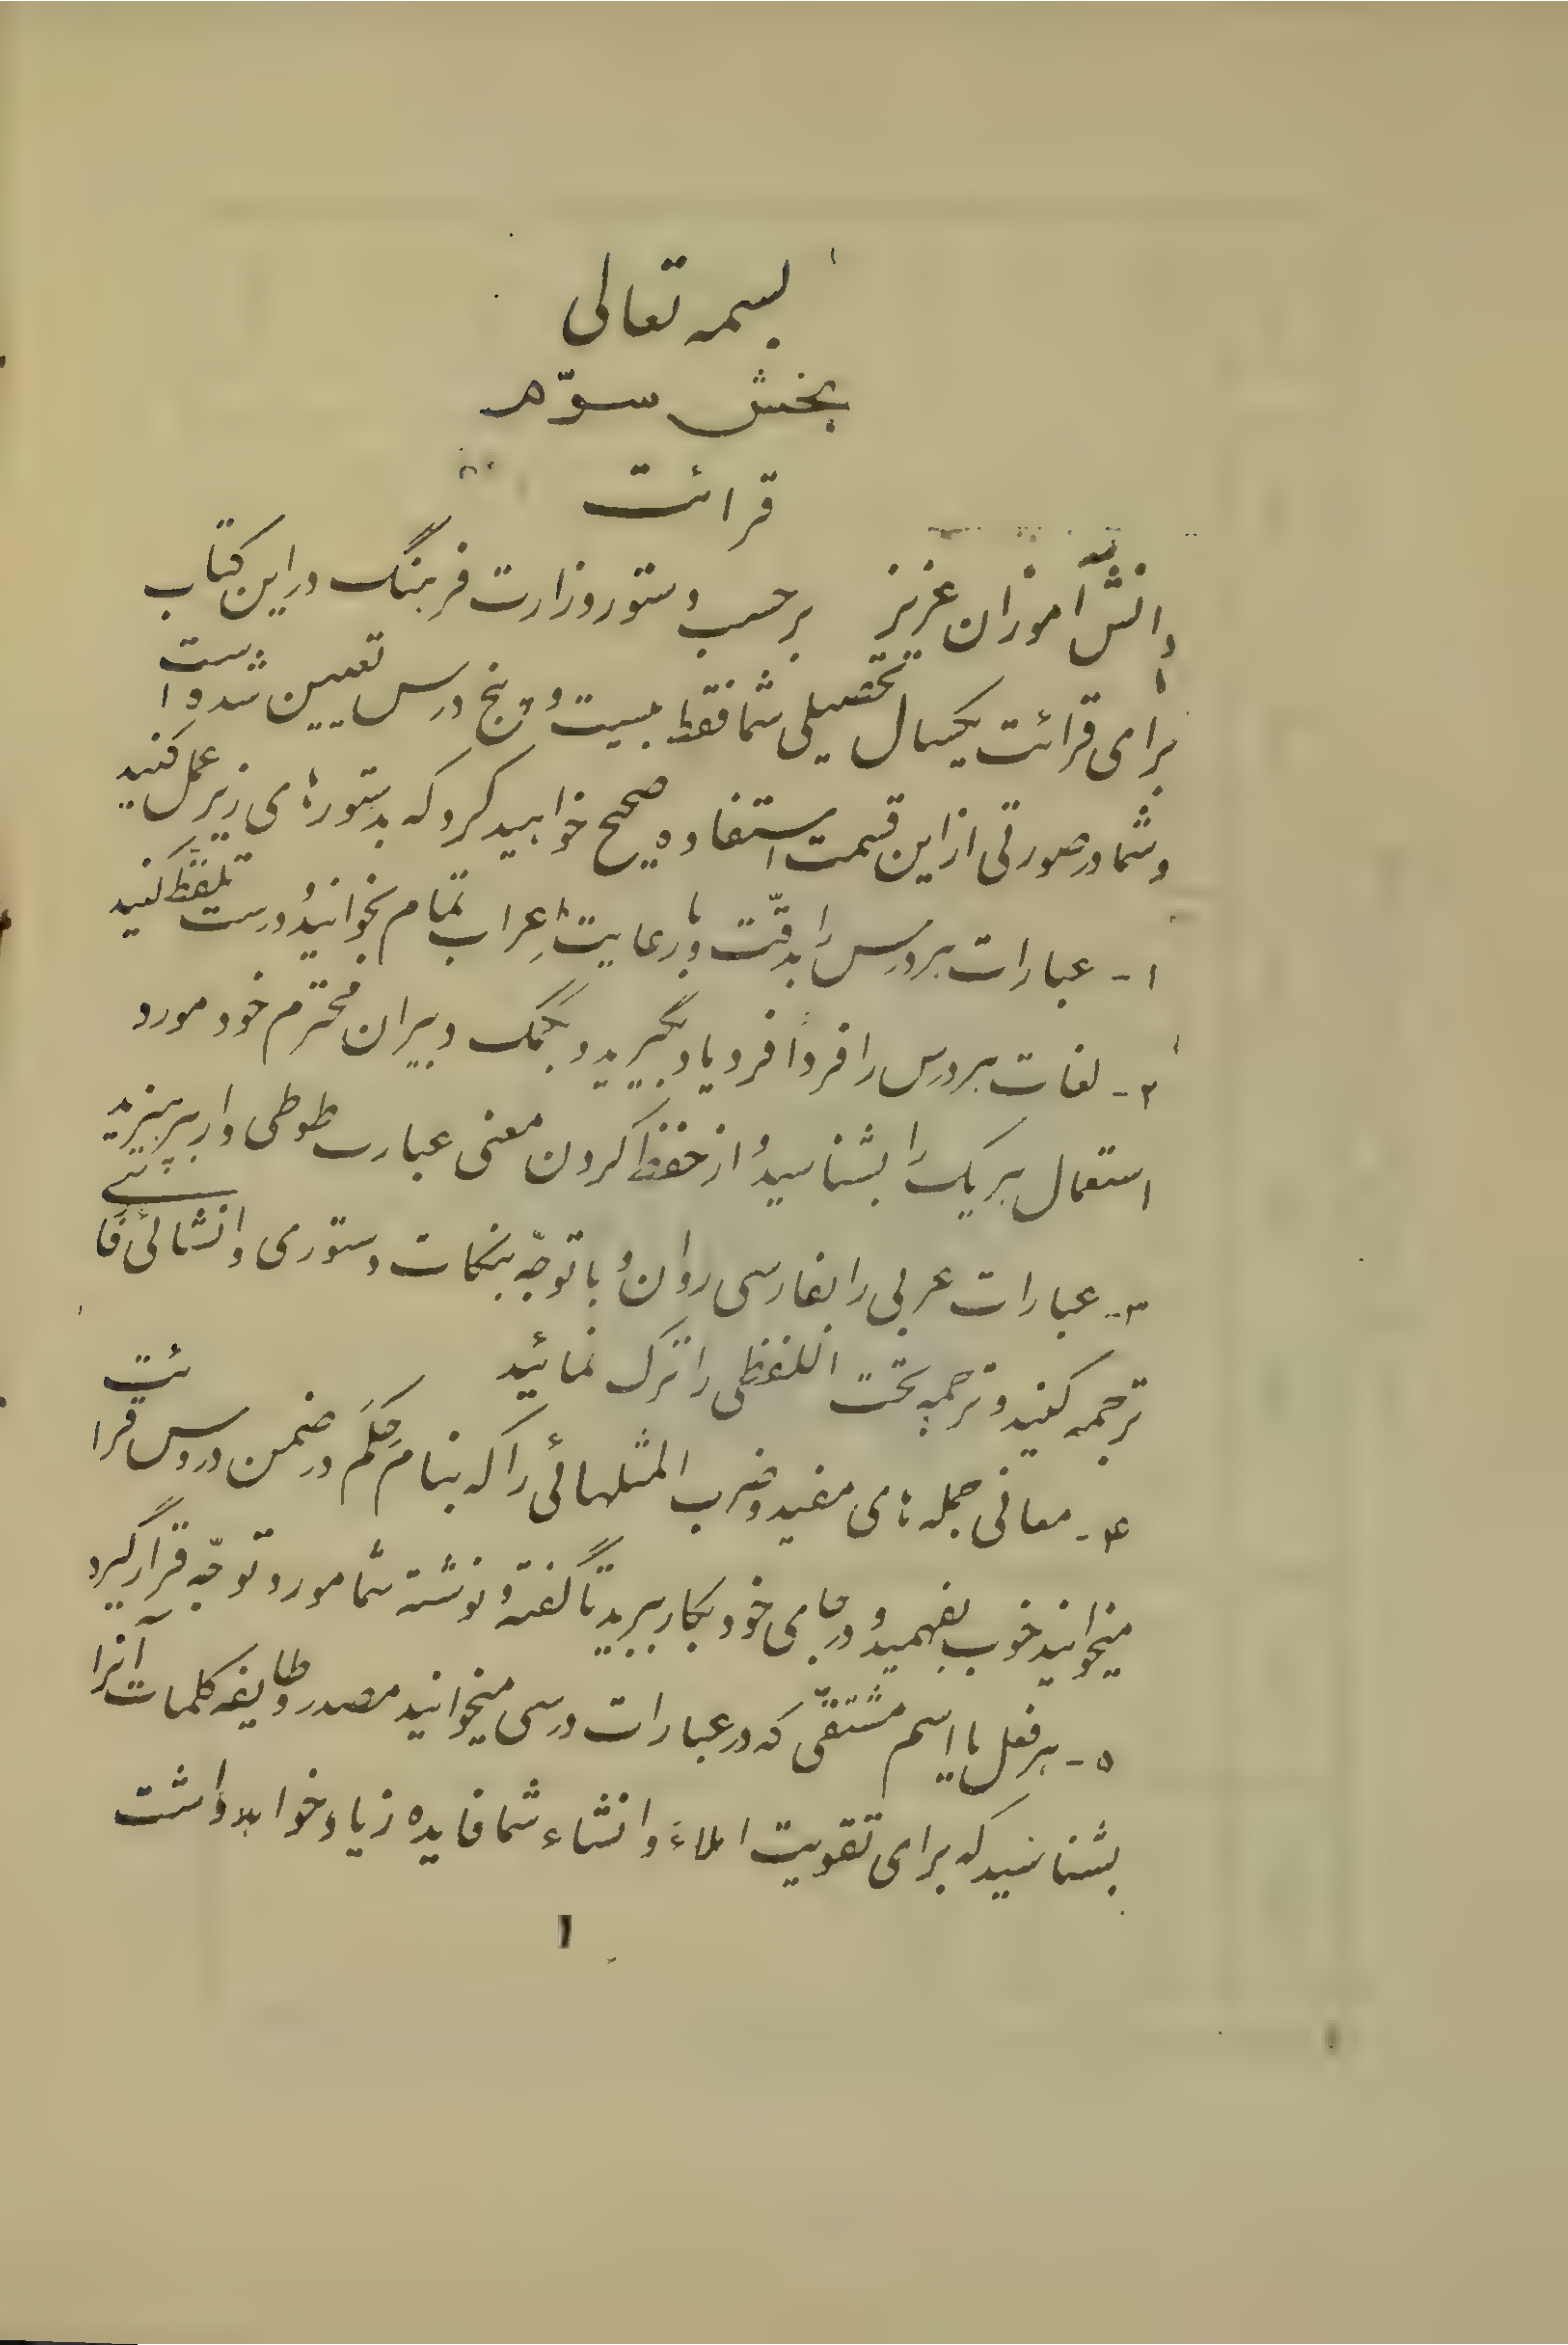 بسمه تعالی
بخش سوّم
قرائت
دانش‌آموزان عزیز برحسب دستور وزارت فرهنگ در این کتاب
برای قرائت یکسال تحصیلی شما فقط بیست و پنج درس تعیین شده است
و شما در صورتی از این قسمت استفاده صحیح خواهید کرد که بدستورهای زیر عمل کنید
۱- عبارات هر درس را بدقّت و با رعایت اِعراب تمام بخوانید و درست تلفّظ کنید
۲- لغات هر درس را فرداً فرد یاد بگیرید و بکمک دبیران محترم خود مورد
استعمال هر یک را بشناسید و از حفظ کردن معنی عبارت طوطی وار بپرهیزید
۳- عبارات عربی را بفارسی روان و با توجّه بنکات دستوری و انشائی فارسی
ترجمه کنید و ترجمه تحت اللفظی را ترک نمائید
۴- معانی جمله های مفید و ضرب المثلهائی را که بنام حِکَم در ضمن دروس قرائت
میخوانید خوب بفهمید و در جای خود بکار ببرید تا گفته و نوشته شما مورد توجّه قرار گیرد
۵- هر فعل یا اسم مشتقّی که در عبارات درسی میخوانید مصدر و طایفه کلمات آنرا
بشناسید که برای تقویت املاء و انشاء شما فایده زیاد خواهد داشت
۱